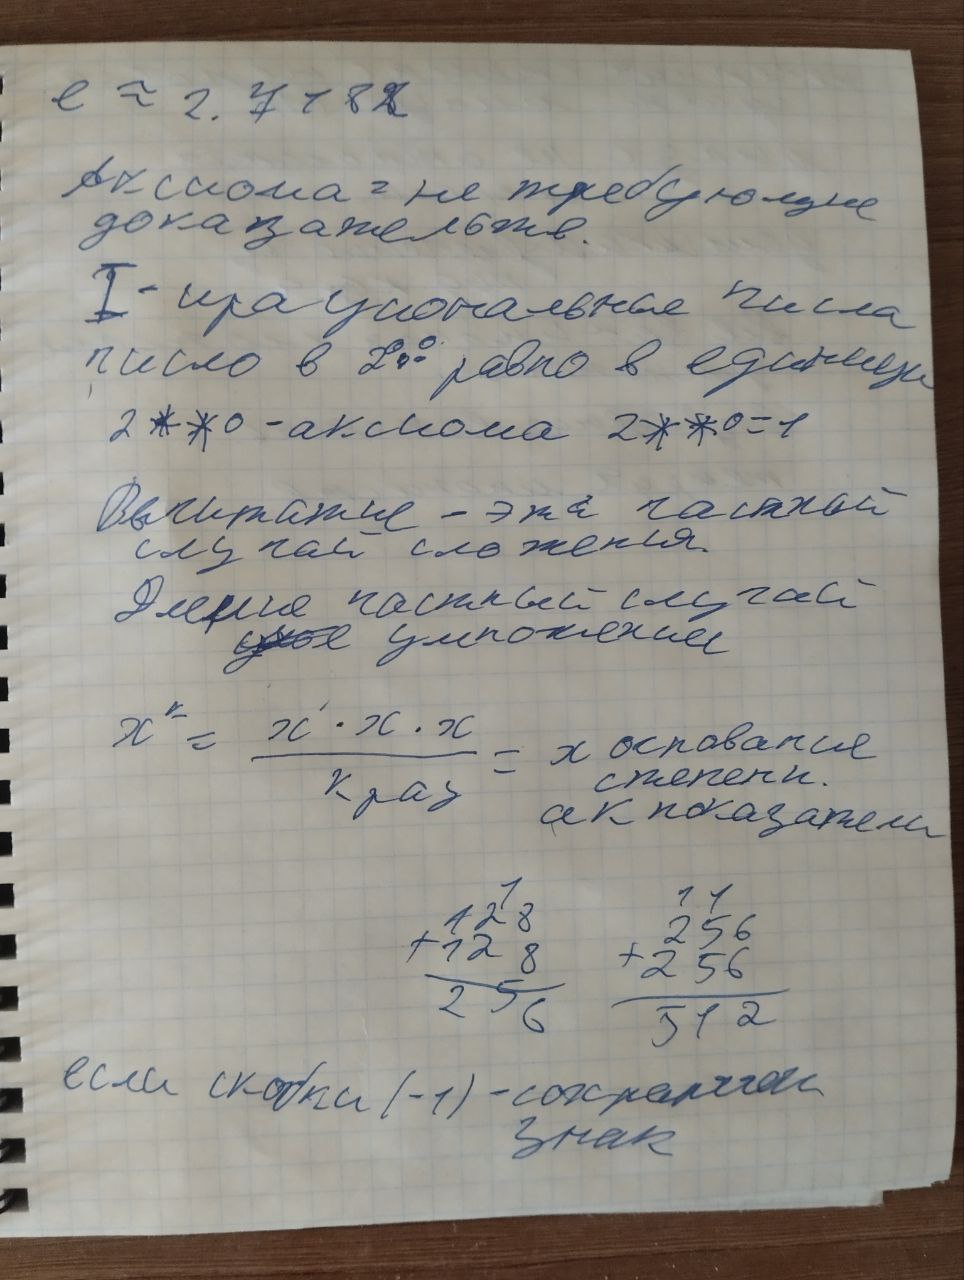 e ≈ 2.718
Аксиома = не требующие
доказательтв.
I - ирациональные числа
число в равно в единици
2**0 - аксиома 2**0=1
Вычитание - это частный
случай сложения.
частный случай
умножении
x^k = x · x · x = x основание
к раз степени.
а к показатели
1 11
128 256
+128 +256
256 512
если скобки (-1) -
знак